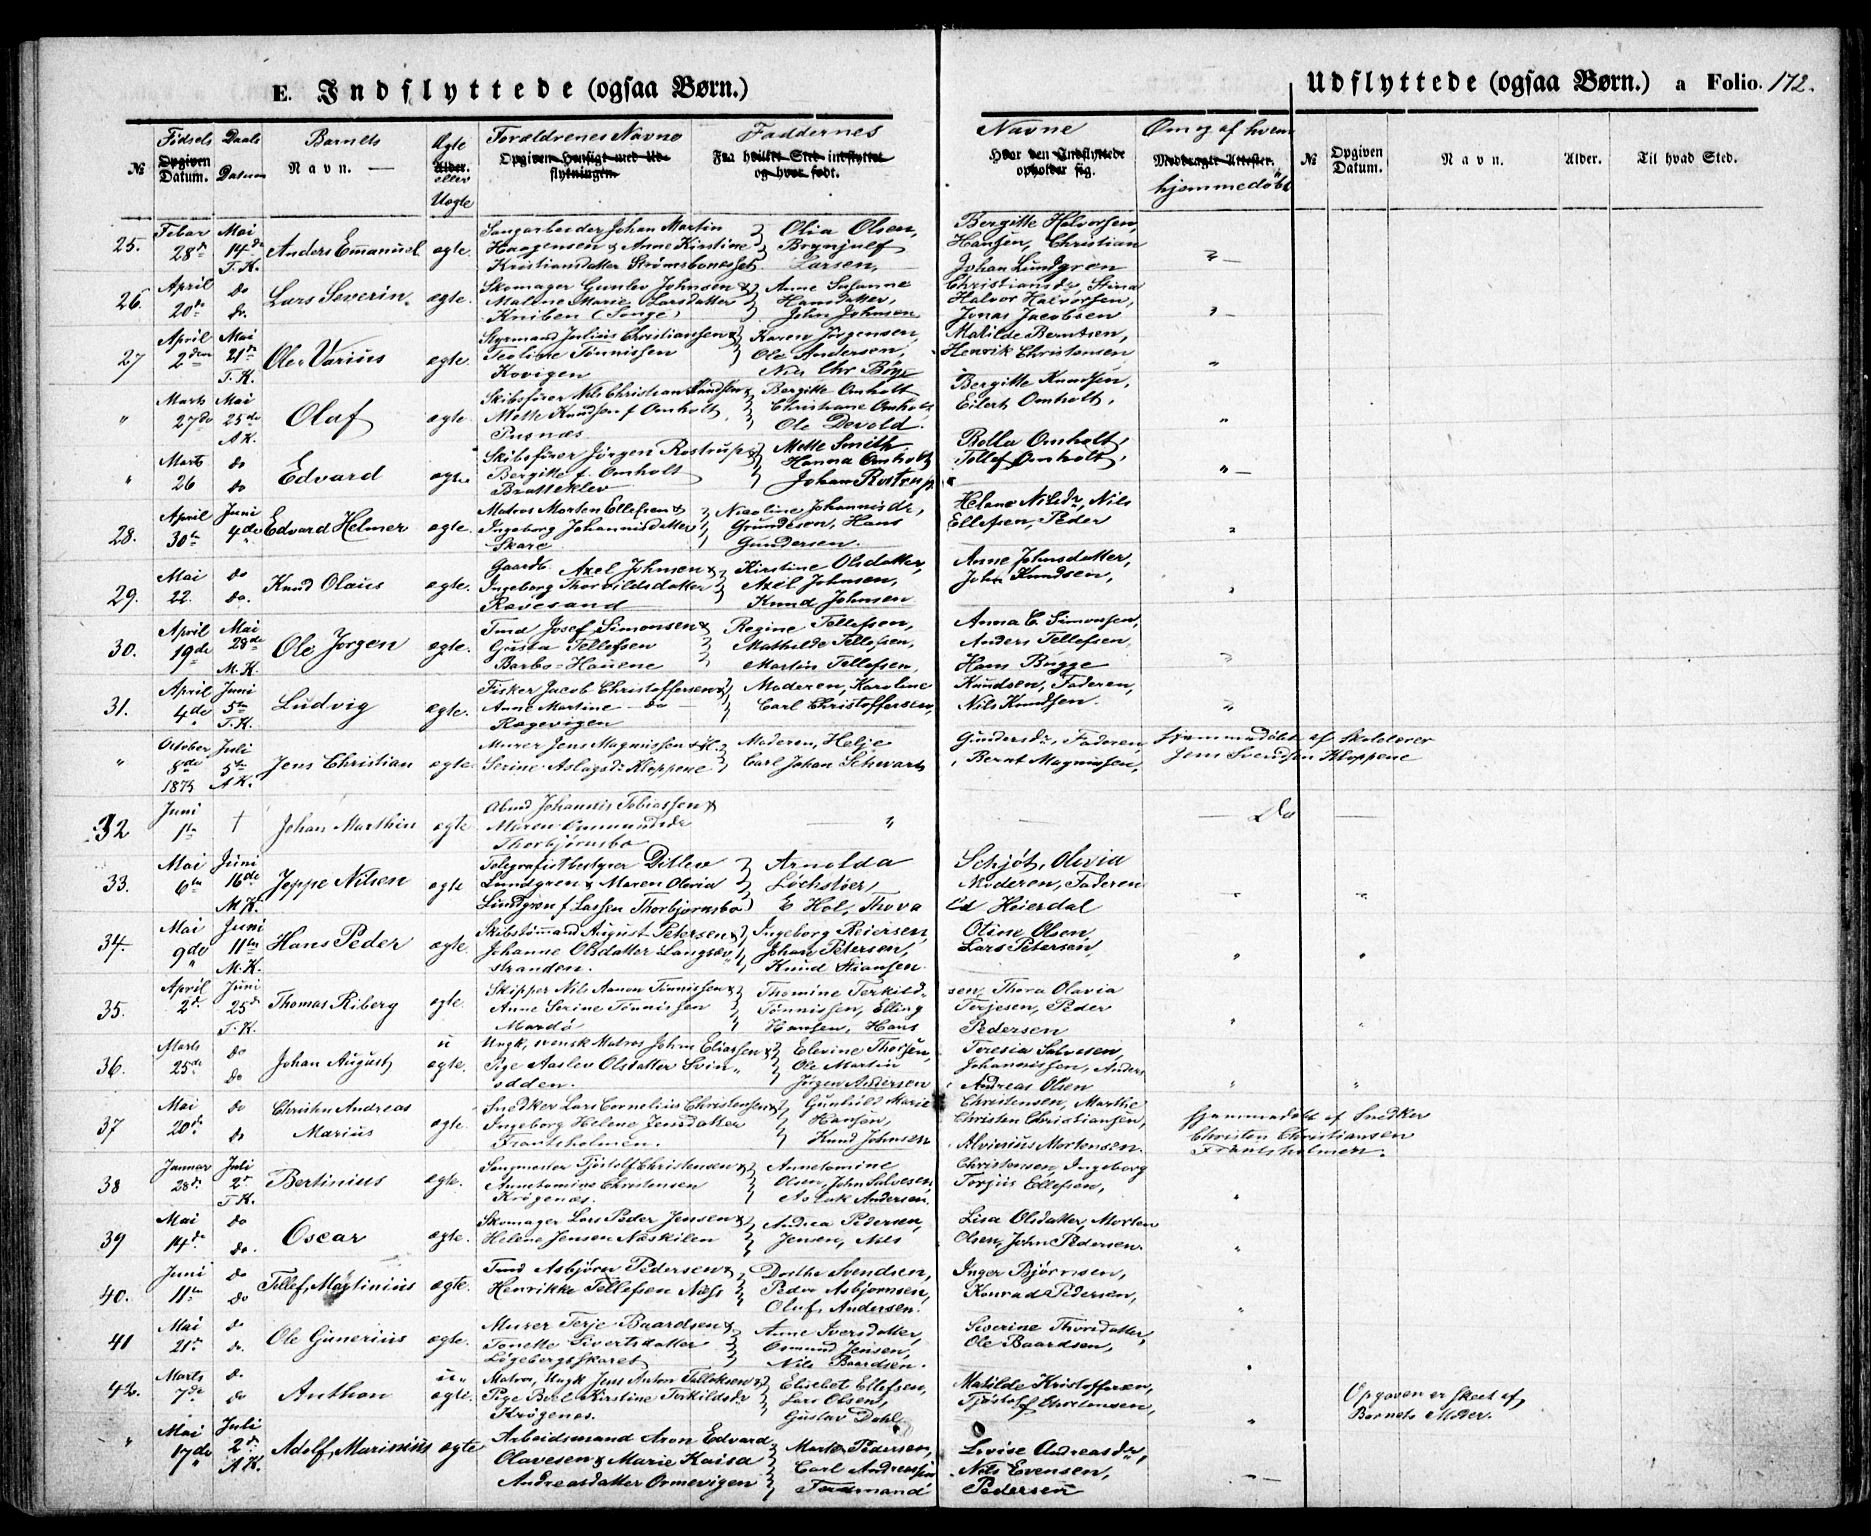 E. Indflyttede (ogsaa Børn.)
Udflyttede (ogsaa Børn.) a Folio. 172.
Fødsels Daabs Barnets Ægte Forældrenes Navne Faddernes Navne Om og af hvem
№ Opgiven Datum. Datum Navn. Alder. eller Uægte Opgiven Hensigt med Udflytningen. Fra hvilket Sted indflyttet og hvor født. Hvor den Indflyttede opholder sig. Medbragte Attester. hjemmedøbt № Opgiven Datum. Navn. Alder. Til hvad Sted.
25. Febar 28de Mai 14de T. K. Anders Emanuel ægte. Johan Martin Haagensen & Anne Kirstine Kristiansdatter Strømsbonesset Olia Olsen, Brynjulf Larsen, Bergitte Halvorsen, Hansen, Christian Johan Lundgren
26. April 20de do do. Lars Severin. ægte. Skomager Gunlev Johnsen & Malene Marie Larsdatter Kniben (Songe) Anne Susanne Hansdatter, John Johnsen Christiansdr, Stina Halvor Halvorsen, Jonas Jacobsen
27 April 2den Mai 21de T. K. Ole Varius ægte. Styrmand Julius Christiansen & Teoline Tønnissen Kovigen Karen Jørgensen, Ole Andersen, Nils Chr Bøye Matilde Berntsen, Henrik Christensen
" Marts 27de Mai 25de A K. Olaf ægte. Skibsfører Nils Christian Knudsen & Mette Knudsen f Omholt Pusnæs Bergitte Omholt Christiane Omholt, Ole Devold. Bergitte Knudsen, Eilert Omholt,
" Marts 26 do do Edvard ægte Skibsfører Jørgen Rostrup & Bergitte f. Omholt Bratteklev Mette Smith Hanna Omholt Johan Rostrup Rolla Omholt, Tollef Omholt,
28. April 30te Juni 4de Edvard Helmer ægte. Matros Morten Ellefsen & Ingeborg Johannisdatter Skare Nicoline Johannisdr, Grundesen, Hans Gundersen. Helene Nilsdr, Nils Ellefsen, Peder
29. Mai 22. do do. Knud Olaus ægte. Gaardb. Axel Johnsen & Ingeborg Thorvildsdatter Rævesand Kirstine Olsdatter, Axel Johnsen, Knud Johnsen Anne Johnsdatter, John Knudsen,
30. April 19de Mai 28de M. K. Ole Jørgen ægte. Tmd Josef Simonsen & Gusta Tellefsen Barbo-Hauene Regine Tellefsen, Mathilde Tellefsen, Martin Tellefsen, Anna C. Simonsen, Anders Tellefsen, Hans Bugge
31. April 4de Juni 5te T. K. Ludvig ægte. Fisker Jacob Christoffersen & Anne Martine do Rægevigen Moderen, Karoline Carl Christoffersen, Knudsen, Faderen, Nils Knudsen.
" October 8de 1875 Juli 5te A K. Jens Christian ægte. Murer Jens Magnussen & H. Serine Aslagsdr Kloppene Moderen, Helje Carl Johan Schwarts Gundersdr, Faderen, Bernt Magnussen, hjemmedøbt af Skolelærer Jens Svendsen Kloppene
32 Juni 1te † Johan Marthin ægte. Johannis Tobiassen & Maren Thorbjørnsbo " Do
33. Mai 6te Juni 16de M. K. Jeppe Nilsen ægte Telegrafbestyrer Ditlev Lundgren & Maren Olovia Lundgren f Lassen Thorbjørnsbo Arnolda Løchstøer, E Hol, Thova Schjøt, Olovia Moderen, Faderen Ed Heierdal
34. Mai 9de Juni 11te M. K. Hans Peder ægte. Skibstømmand August Petersen & Johanne Olsdatter Langsæv stranden. Ingeborg Reiersen, Johan Petersen, Knud Stiansen Oline Olsen. Lars Petersen,
35. April 2de Juni 25de T. K. Thomas Riberg ægte. Skipper Nils Aanon Tønnissen & Anne Serine Tønnissen Mardø Thomine Terkild- Tønnissen, Elling Hansen, Hans sen, Thora Olavia Terjesen, Peder Pedersen
36. Marts 25de do do Johan August u ægte. Ungk, svensk Matros Johan Eliassen & Pige Aaslev Olsdatter Svin odden. Elevine Thorsen, Ole Martin Jørgen Andersen Teresia Salvesen, Johannissen, Anders Andreas Olsen
37 Mai 20de do do Christen Andreas Marius ægte. Snedker Lars Cornelius Christensen & Ingeborg Helene Jensdatter Frantsholmen. Gunhild Marie Hansen, Knud Johnsen Christensen, Marthe Christen Christiansen, Alvinius Mortensen. hjemmedøbt af Snedker Christen Christiansen Frantsholmen.
38 Januar 28de Juli 2de T K. Bertinius ægte. Sangmester Tjøstolf Christensen & Annetomine Christensen Krøgenæs. Annetomine Olsen, John Salvesen, Aslak Andersen, Christensen, Ingeborg Torjus Ellefsen,
39 Mai 14de do do. Oscar ægte. Skomager Lars Peder Jensen & Helene Jensen Neskilen Andrea Pedersen, Jensen, Nils Lisa Olsdatter, Morten Olsen, John Pedersen.
40. Juni 11te do do Tellef Martinius ægte. Tmd Asbjørn Pedersen & Henrikke Tellefsen Næss Dorthe Svendsen, Peder Asbjørnsen, Oluf Andersen. Inger Bjørnsen, Konrad Pedersen,
41 Mai 21de do do. Ole Gunerius ægte. Murer Terje Baardsen & Tonette Sivertsdatter Løgebergsskaret Anne Iversdatter, Osmund Jensen, Nils Baardsen. Severine Thorsdatter, Ole Baardsen,
42. Marts 7de do do Anthon u ægte. Matros, Ungk Jens Anton Tellefsen & Pige Berl Kirstine Terkildsdr Krøgenæs. Elisebet Ellefsen, Lars Olsen, Gustav Dahl Matilde Kristoffersen, Tjøstolf Christensen, Opgaven er skeet af Barnets Moder.
" Mai 17de Juli 2de A K. Adolf Marinius ægte Arbeidsmand Aron Edvard Olavesen & Marie Kaisa Andreasdatter Ormevigen Marte Pedersen, Carl Andreassen Ferdinand Lovise Andreasdr, Nils Evensen, Pedersen